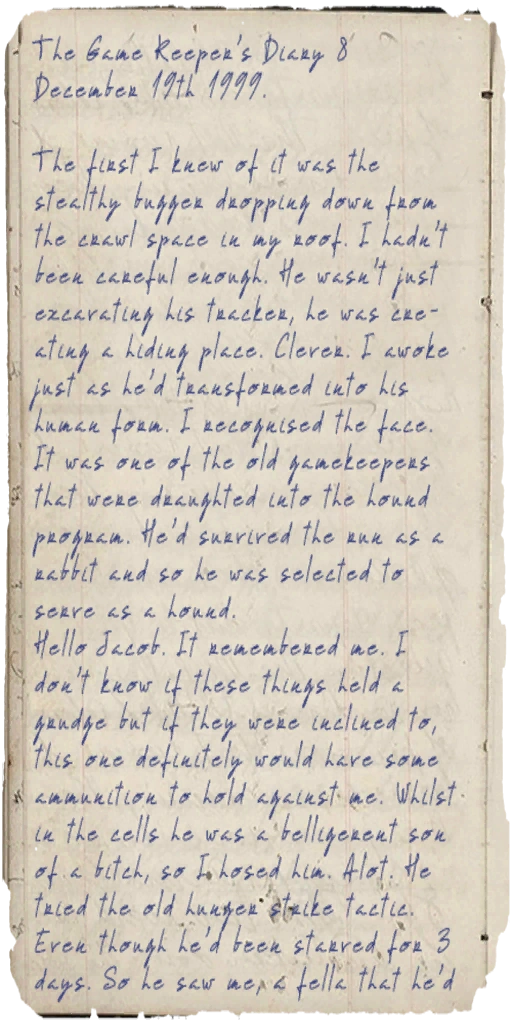 The Game Keeper's Diary 8
December 19th 1999.
The first I knew of it was the
stealthy bugger dropping down from
the crawl space in my roof. I hadn't
been careful enough. He wasn't just
excavating his tracker, he was cre-
ating a hiding place. Clever. I awoke
just as he'd transformed into his
human form. I recognised the face.
It was one of the old gamekeepers
that were draughted into the hound
program. He'd survived the run as a
rabbit and so he was selected to
serve as a hound.
Hello Jacob. It remembered me. I
don't know if these things held a
grudge but if they were inclined to,
this one definitely would have some
ammunition to hold against me. Whilst
in the cells he was a belligerent son
of a bitch, so I hosed him. Alot. He
tried the old hunger strike tactic.
Even though he'd been starved for 3
days. So he saw me, a fella that he'd